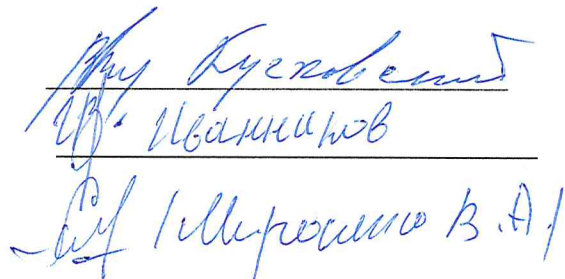 Кучковский
Иванников
/Мирошенко В.А./